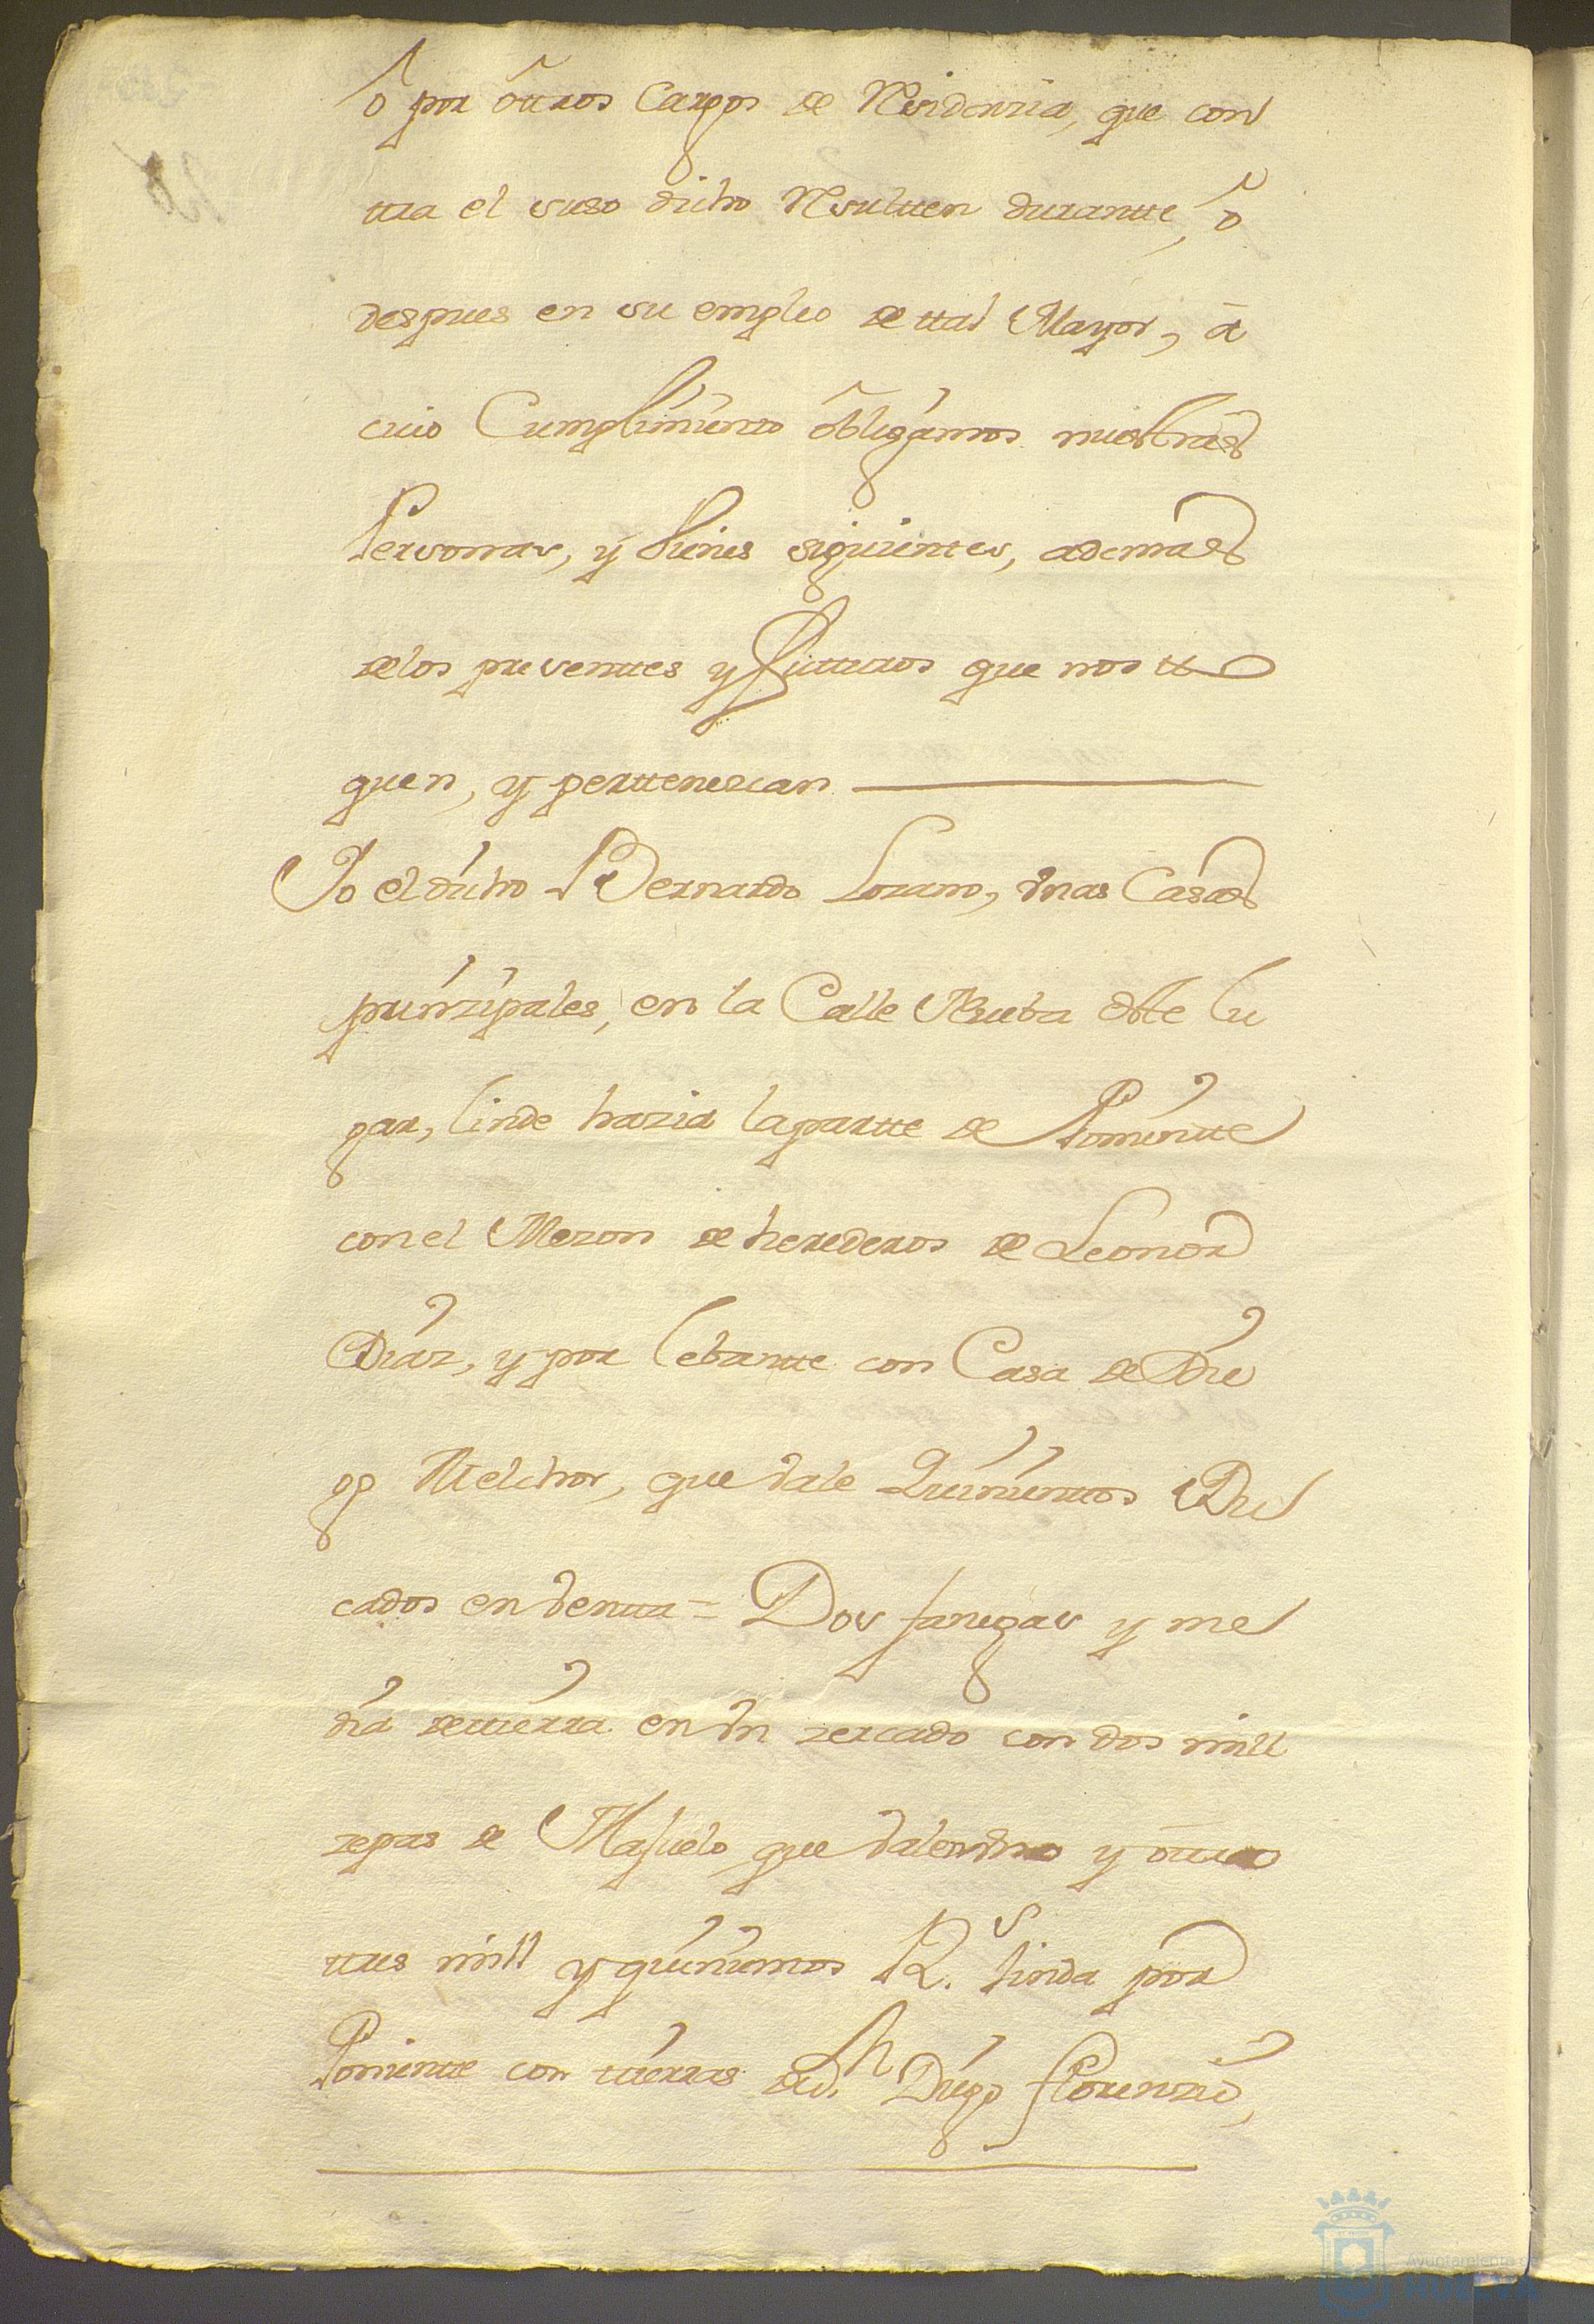 ô por ôttros Cargos de Residenzia, que con
ttra el suso dicho Resultten durantte, ô
despues en su empleo de ttal Mayor, â
cuio Cumplimiento ôbligamos nuestras
Personas, y Vienes siguientes, ademas
delos presenttes y futturos que nos tto
quen, y perttenescan
Yo el dicho Bernardo Lozano, vnas Casas
prinzipales, en la Calle Nueba deste lu
gar, linde hazia lapartte de Ponientte
con el Mezon de herederos de Leonor
Diaz, y por lebantte con Casa de Die
go Melchor, que vale Quinienttos Du
cados en ventta = Dos fanegas y me
dia de tierra en vn zercado con dos mill
zepas de Majuelo que valen vno y ottro
ttres mill y quinientos R.s linda por
Ponientte con ttierras de d.n Diego florenzio,
Ayuntamiento de
HUELVA